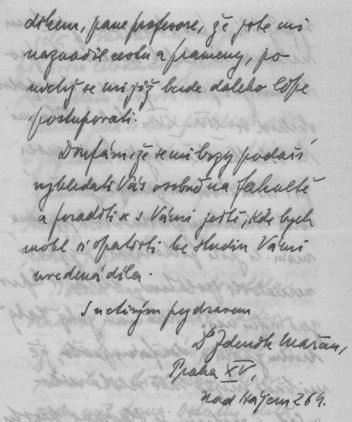 díkem, pane profesore, že jste mi
naznačil cestu a prameny, po
nichž se mi již bude daleko lépe
postupovati.
Doufám, že se mi brzy podaří
vyhledati Vás osobně na fakultě
a poraditi se s Vámi ještě, kde bych
mohl si opatřiti ke studiu Vámi
uvedená díla.
S uctivým pozdravem
Dr Zdeněk
Praha XV.
Nad 264.